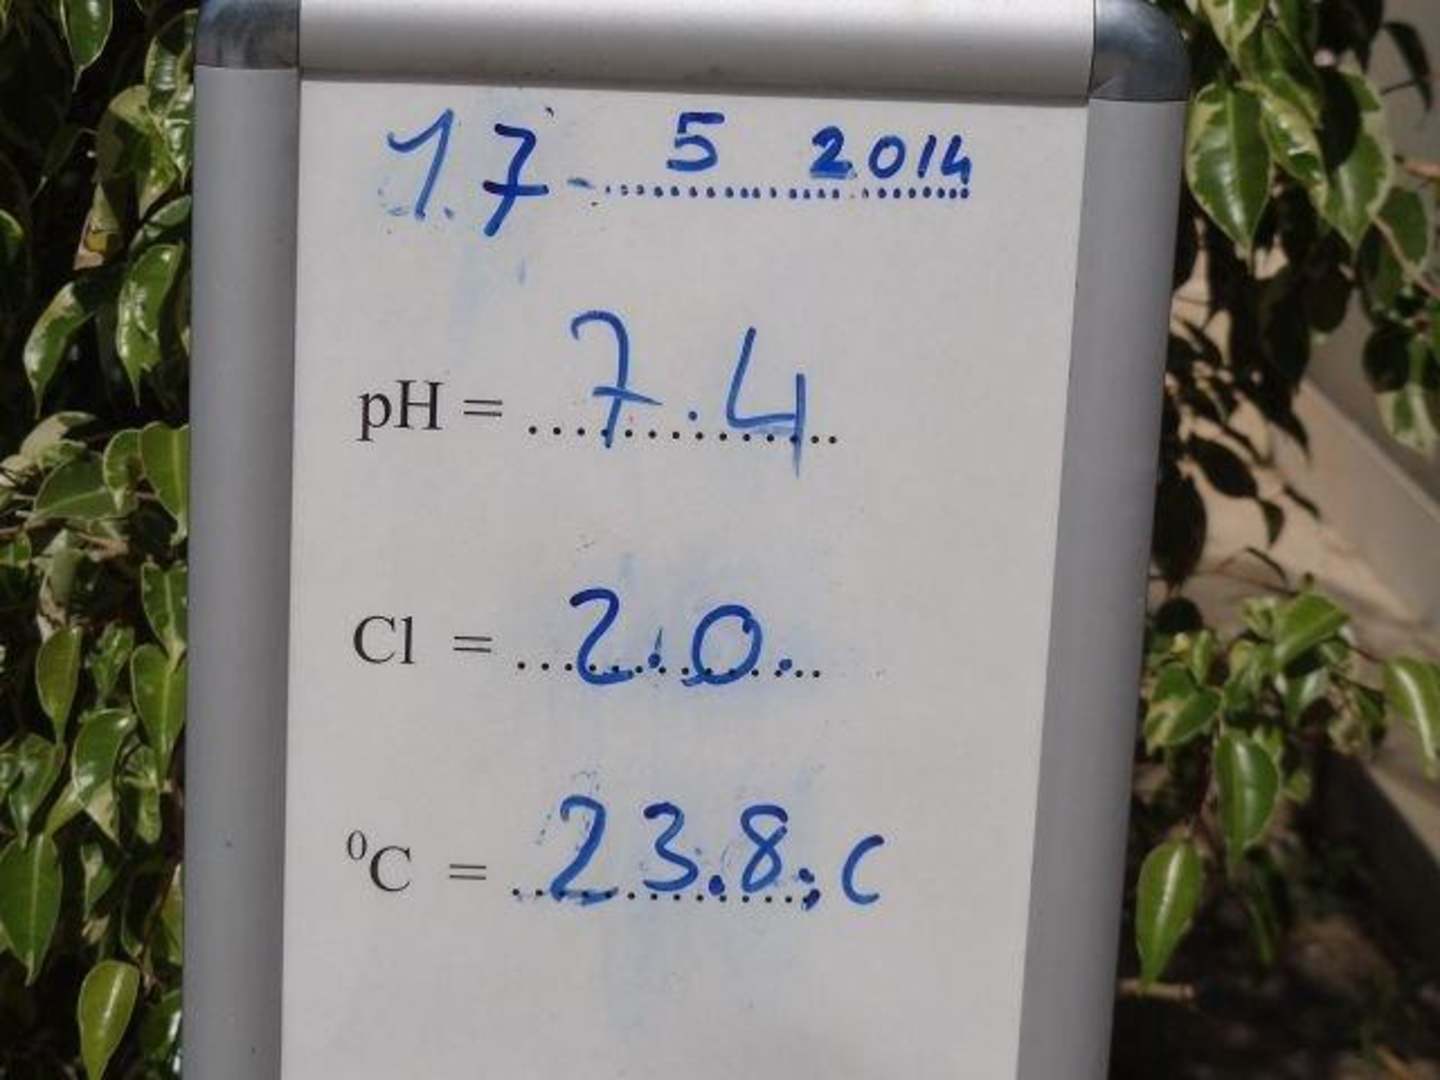 17 - 5 2014
pH = 7.4
Cl = 2.0.
⁰C = 23.8.c